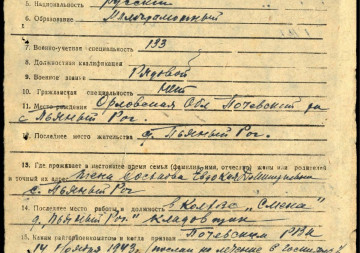 5. Национальность русский
6. Образование Малограмотный
7. Военно-учетная специальность 133
8. Должностная квалификация
9. Военное звание Рядовой
10. Гражданская специальность Нет
11. Место рождения Орловская Обл. Почепский р-н
с. Пьяный Рог.
12. Последнее место жительства с. Пьяный Рог.
13. Где проживает в настоящее время семья (фамилия, имя, отчество жены или родителей
и точный их адрес) жена Евдокия
с. Пьяный Рог
14. Последнее место работы и должность в Колхоз „Смена"
д. „Пьяный Рог" кладовщик
15. Каким райгорвоенкоматом и когда призван Почепским РВК
14 ноября 1943 г. (послан на лечение в Госпиталь